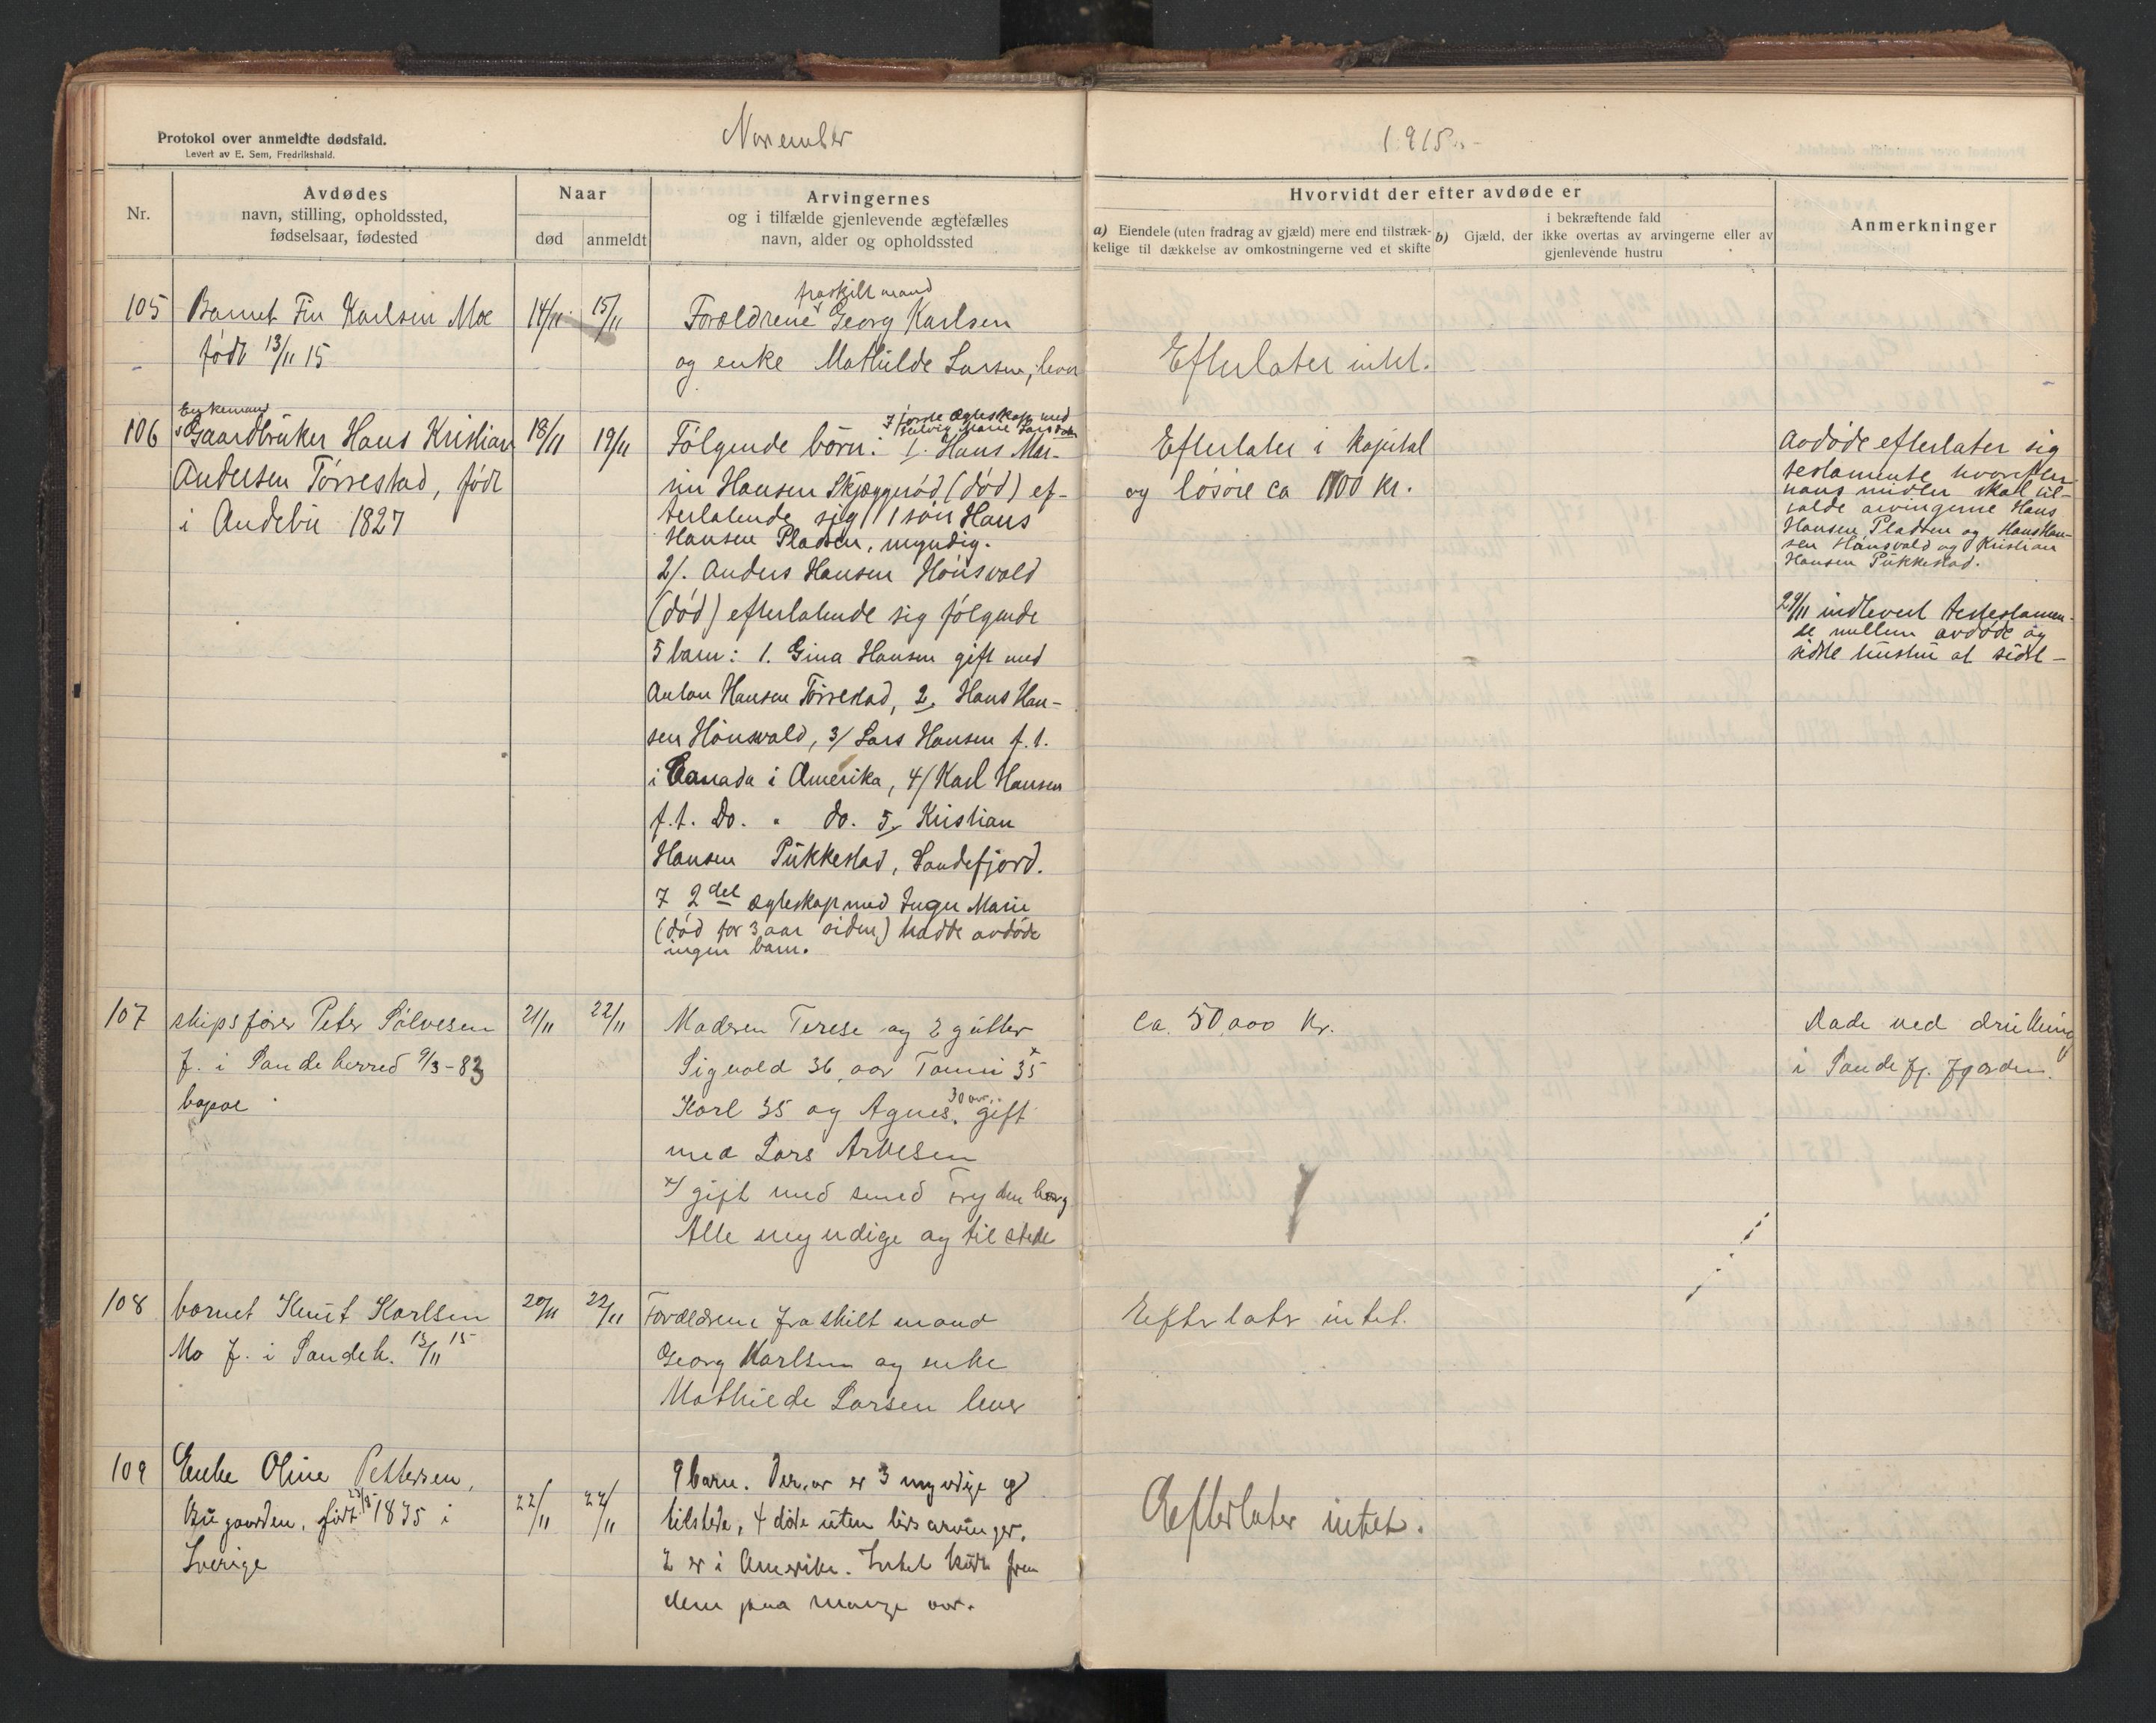 Protokol over anmeldte dødsfald.
Levert av E. Sem, Fredrikshald.
November
1915.
Nr.
Avdødes
navn, stilling, opholdssted,
fødselsaar, fødested
Naar
død
anmeldt
Arvingernes
og i tilfælde gjenlevende ægtefælles
navn, alder og opholdssted
Hvorvidt der efter avdøde er
a) Eiendele (uten fradrag av gjæld) mere end tilstræk-
kelige til dækkelse av omkostningerne ved et skifte
b) Gjæld, der
i bekræftende fald
ikke overtas av arvingerne eller av
gjenlevende hustru
Anmerkninger
105
Barnet Fin Karlsen Moe
født 13/11 15
14/11
15/11
fraskilt mand
Forældrene Georg Karlsen
og enke Mathilde Larsen, lever
Efterlater intet.
106
Enkemand
Gaardbruker Hans Kristian
Andersen Tørrestad, født
i Andebu 1827
18/11
19/11
I første ægteskap med
Marie
Følgende børn: 1. Hans Mar-
tin Hansen Skjæggerød (død) ef-
terlatende sig 1 søn Hans
Hansen Pladsen, myndig.
2/. Anders Hansen Hönsvald
(død) efterlatende sig følgende
5 barn: 1. Gina Hansen gift med
Anton Hansen Tørrestad, 2. Hans Han-
sen Hönsvald, 3/ Lars Hansen f.t.
i Canada i Amerika, 4/ Karl Hansen
f.t. Do. " do. 5. Kristian
Hansen Pukkestad, Sandefjord.
I 2det ægteskap med Inger Marie
(død for 3 aar siden) hadde avdøde
ingen barn.
Efterlater i kapital
og løsøre ca 1100 kr.
Avdøde efterlater sig
testamente hvorefter
hans midler skal til-
falde arvingerne Hans
Hansen Pladsen og Hans Han-
sen Hönsvald og Kristian
Hansen Pukkestad.
29/11 indlevert
mellem avdøde og
sidste hustru
107
skipsfører Peter Sølvesen
f. i Sandeherred 9/3-83
21/11
22/11
Moderen Terese og 2 gutter
Sigvald 36 aar 35 x
30 aar
Karl 35 og Agnes, gift
med Lars Arvesen
x/ gift med smed Frydenberg
Alle myndige og tilstede
ca. 50,000 kr.
døde ved drukning
i Sandefj. fjorden.
108
barnet Knut Karlsen
Mo f. i Sandeh. 13/11 15
20/11
22/11
Forældrene fraskilt mand
Georg Karlsen og enke
Mathilde Larsen lever
Efterlater intet.
109
Enke Oline Pettersen,
Bugaarden, født 23/8 1835 i
Sverige
22/11
22/11
9 barn. Derav er 3 myndige og
tilstede, 4 døde uten livsarvinger.
2 er i Amerika. Intet hørt fra
dem paa mange aar.
Efterlater intet.